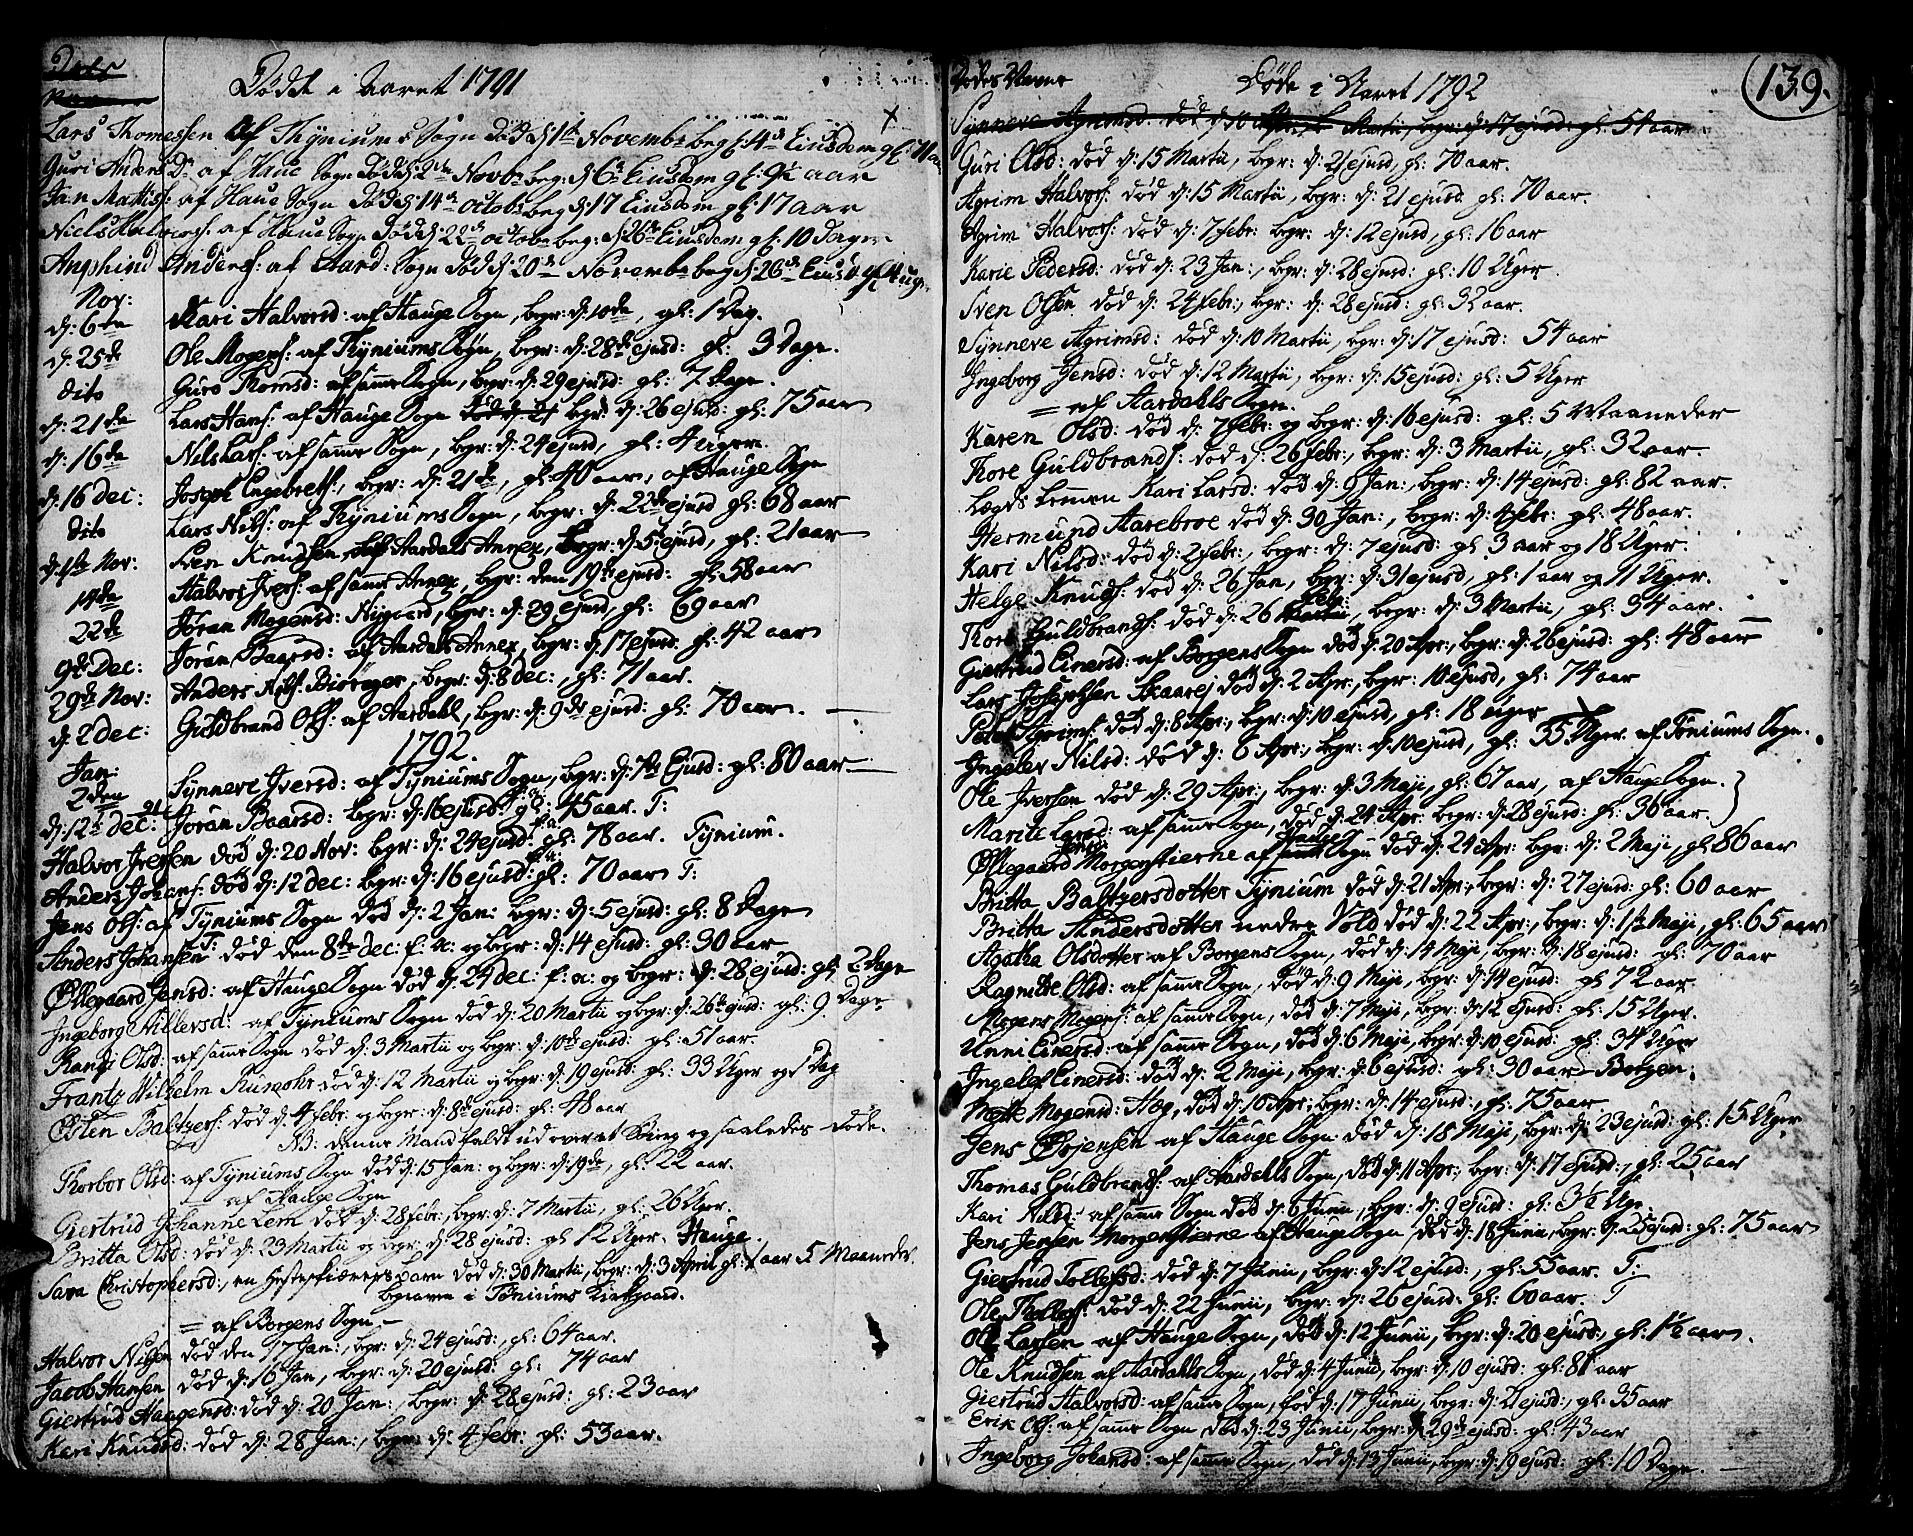 Dødde i Aaret 1791
Lars Thomessen af Thyniums Sogn død d: 1te Novembr begr: 4de Eiusdem gl:
Guri Anders Dr af Haue Sogn død d: 2den Novbr beg: d: 6te Eiusdem gl: 9½ aar
Jan Mathis: af Haue Sogn død d: 14de octobr beg d: 17 Eiusdem gl: 17 aar
Niels Halvors: af Haue Sogn død d: 22de octobr beg: d: 26te Eiusdem gl: 10 dager
Anphind Anders: af Aard: Sogn død d: 20de Novembr beg d: 26de Eiusd gl 4 ug:
Nov:
d: 6te Kari Halvorsd: af Hauge Sogn, begr: d: 10de, gl: 1 Dag.
d: 25de Ole Mogens: af Thyniums Sogn, begr: d: 28de ejusd: gl: 3 Dage.
dito Guro Thomsd: af samme Sogn, begr: d: 29 ejusd: gl: 7 Dage.
d: 21de Lars Hans: af Hauge Sogn begr: d: 26 ejusd: gl: 75 aar
d: 16de Nils Lars: af samme Sogn, begr: d: 24 ejusd, gl: 4 uger.
d: 16 dec: Joseph Engebrets:, begr: d: 21de, gl: 40 aar, af Hauge Sogn
dito Lars Nils: af Thyniums Sogn, begr: d: 22de ejusd gl: 68 aar
d: 1te Nov: Sven Knudsen af Aardals Annex, begr: d: 5 ejusd, gl: 21 aar
14de Halvor Ivers: af samme Annex, begr: den 19de ejusd: gl: 58 aar
22de Jøran Mogensd: Nygaard, begr: d: 29 ejusd, gl: 69 aar
9de Dec: Jøran Baarsd: af Aardals Annex, begr: d: 17 ejusd: gl: 42 aar
29de Nov: Anders Nils: , begr: d: 8 dec:, gl: 71 aar.
d: 2 dec: Guldbrand Ols: af Aardahl, begr: d: 9de ejusd: gl: 70 aar.
1792.
Jan:
2den Synneve Iversd: af Tyniums Sogn, begr: d: 7de Ejusd: gl: 80 aar
d: 12te dec: Jøran Baarsd: begr: d: 16 ejusd: gl: 45 aar. T:
Halvor Iversen død d: 20 Nov: begr: d: 24 ejusd: gl: 78 aar. Tynium.
Anders Johans: død d: 12 dec: begr: d: 16 ejusd: gl: 70 aar T:
Jens Ols: af Tyniums Sogn død d: 2 Jan: begr: d: 5 ejusd: gl: 8 Dage
Anders Johansen T: død den 8de dec: f: a: og begr: d: 14 ejusd: gl: 30 aar
Øllegaard Jensd: af Hauge Sogn død d: 24 dec: f: a: og begr: d: 28 ejusd: gl: 2 Dage
Ingeborg Villersd: af Tyniums Sogn død d: 20 Martii og begr: d: 26 ejusd: gl: 9 Dage
Randi Olsd: af samme Sogn død d: 3 Martii og begr: d: 10de ejusd: gl: 51 aar.
Frantz Wilhelm Rumohr død d: 12 Martii og begr: d: 19 ejusd: gl: 33 Uger og 1 Dag
Østen Baltzers: død d: 4 febr: og begr: d: 8de ejusd: gl: 48 aar
NB: denne Mand faldt ud over et Bierg og saaledes døde.
Thorbor Olsd: af Tyniums Sogn død d: 15 Jan: og begr: d: 19de, gl: 22 aar.
af Hauge Sogn
Giertrud Johanne Lem død d: 28 febr:, begr: d: 7 Martii, gl: 26 Uger.
Britta Olsd: død d: 23 Martii og begr: d: 28 ejusd: gl 12 Uger. Hauge.
Sara Christophersd:, en barn død d: 30 Martii, begr: d: 3 April gl: 1 aar 5 Maaneder.
begraven i Tøniums Kirkgaard.
= af Borgens Sogn –
Halvor Nilsen død den 17 Jan:, begr: d: 24 ejusd:, gl: 64 aar.
Jacob Hansen død d: 16 Jan, begr: d: 20 ejusd: gl: 74 aar
Giertrud Haagensd: død d: 20 Jan:, begr: d: 28 ejusd: gl: 23 aar
Kari Knudsd: død d: 28 Jan:, begr: d: 4 febr: gl: 53 aar.
Dødes Navne Døde i Aaret 1792 139.
Synneve Agrimsd: død d: 10 Martii, begr: d: 17 ejusd: gl: 54 aar
Guri Olsd: død d: 15 Martii, begr: d: 21 ejusd, gl: 70 aar.
Agrim Halvors: død d: 15 Martii, begr: d: 21 ejusd gl: 70 aar.
Agrim Halvors: død d: 7 febr: begr: d: 12 ejusd, gl: 16 aar
Karie Pedersd: død d: 23 Jan:, begr: d: 28 ejusd: gl: 10 Uger.
Sven Olsen død d: 24 febr:, begr: d: 28 ejusd: gl: 32 aar.
Synneve Agrimsd: død d: 10 Martii, begr: d: 17 ejusd: 54 aar
Ingeborg Jensd: død d: 12 Martii, begr: d: 15 ejusd: gl: 5 Uger
= af Aardahls Sogn.
Karen Olsd: død d: 7 febr: og begr: d: 16 ejusd: gl: 5 Maaneder
Thore Guldbrands: død d: 26 febr:, begr: d: 3 Martii, gl: 32 aar.
Lægds Lemmen Kari Larsd: død d: 9 Jan:, begr: d: 14 ejusd: gl: 82 aar.
Hermund Aarebroe død d: 30 Jan:, begr: d: 4 febr: gl: 48 aar.
Kari Nilsd: død d: 2 febr:, begr: d: 7 ejusd: gl 3 aar og 18 Uger.
Helge Knuds: død d: 26 Jan, begr: d: 31 ejusd, gl: 1 aar og 11 Uger.
Thore Guldbrands: død d: 26 febr:, begr: d: 3 Martii, gl: 34 aar.
Giertrud Einersd: af Borgens Sogn død d: 20 Apr:, begr: d: 26 ejusd: gl: 48 aar
Lars Josephsen Skaarej død d: 2 Apr, begr: 10 ejusd, gl: 74 aar
Peder Agrims: død d: 6 Apr:, begr: d: 10 ejusd, gl: 18 uger
Ingelev Nilsd: død d: 6 Apr:, begr: d: 10 ejusd, gl: 35 Uger af Tøniums Sogn.
Ole Iversen død d: 29 Apr:, begr: d: 3 Maji, gl: 67 aar, af Hauge Sogn.
Marite Larsd: af samme Sogn, død d: 24 Apr: begr: d: 28 ejusd: gl: 36 aar.
Øllegaard Morgenstierne af Hauge Sogn død d: 24 Apr: begr: d: 2 Maji, gl 86 aar
Britta Baltzersdotter Tynium død d: 21 Apr:, begr: d: 27 ejusd: gl: 60 aar
Britta Andersdotter nedre Vold død d: 22 Apr:, begr: d: 1te Maji, gl: 65 aar
Agatha Olsdotter af Borgens Sogn, død d: 14 Maji, begr: d: 18 ejusd: gl: 70 aar
Ragnilde Olsd: af samme Sogn, død d: 9 Maji, begr: d: 14 ejusd: gl 72 aar.
Mogens Mogens: af samme Sogn, død d: 7 Maji, begr: d: 12 ejusd: gl: 15 Uger.
Unni Einersd: af samme Sogn, død d: 6 Maji, begr: d: 10 ejusd: gl: 34 Uger
Ingelef Einersd: død d: 2 Maji, begr: d: 6 ejusd: gl: 30 aar – Borgen.
Mette Mogensd: Hæg, død d: 10 Apr:, begr: d: 14 ejusd:, gl: 75 aar
Jens Børjensen af Hauge Sogn død d: 18 Maji, begr: d: 23 ejusd: gl: 15 Uger
Thomas Guldbrands: af Aardahls Sogn, død d: 11 Apr:, begr: d: 17 ejusd:, gl: 25 aar
Kari Nilsd: af samme Sogn død d: 6 Junii, begr: d: 9 ejusd: gl: 3½ Uge.
Jens Jensen Morgenstierne af Hauge Sogn død d: 18 Junii, begr: d: 25 ejusd: gl: 75 aar
Giertrud Tollefsd: død d: 7 Junii, begr: d: 12 ejusd:, gl: 55 aar. T:
Ole død d: 22 Junii, begr: d: 26 ejusd: gl: 60 aar. T
Ole Larsen af Hauge Sogn, død d: 12 Junii, begr: d: 20 ejusd:, gl: 1½ aar.
Ole Knudsen af Aardahls Sogn, død d: 4 Junii, begr: d: 10 ejusd: gl: 81 aar
Giertrud Halvorsd: af samme Sogn, død d: 17 Junii, begr: d: 21 ejusd:, gl: 35 aar
Erik Ols: af samme Sogn død d: 23 Junii, begr: d: 29de ejusd: gl: 43 aar
Ingeborg Johansd: af samme Sogn, død d: 13 Junii, begr: d: 19 ejusd: gl: 10 Dage.